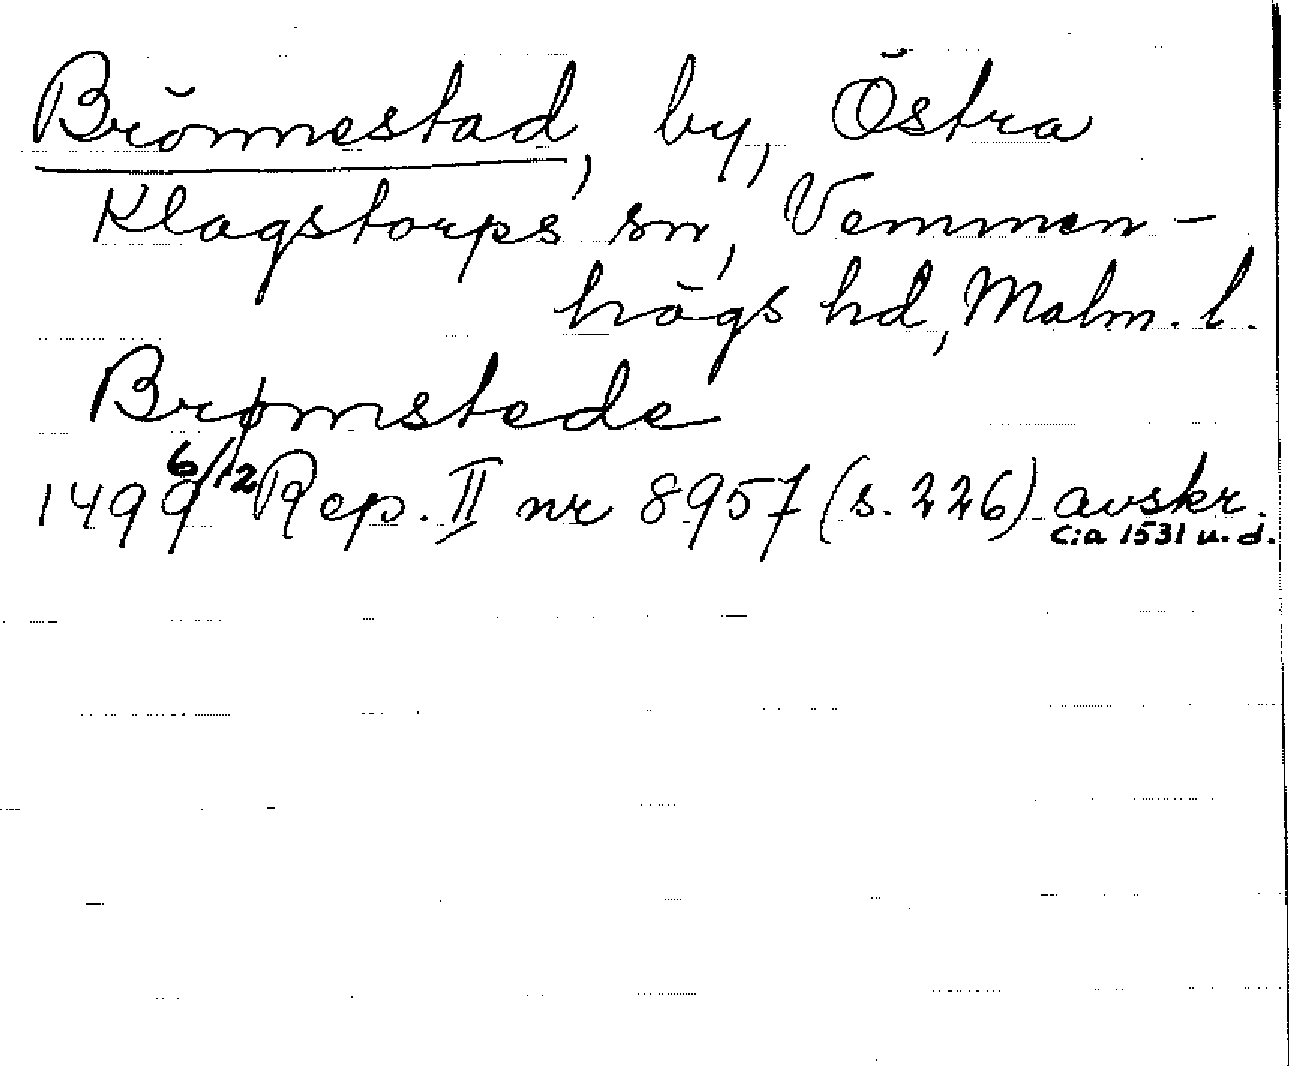 Brönnestad, by, Östra
Klagstorps sn, Vemmen-
högs hd, Malm. l.
Brømstede
1499 6/12 Rep. II nr 8957 (s. 226) avskr.
c:a 1531 u. d.